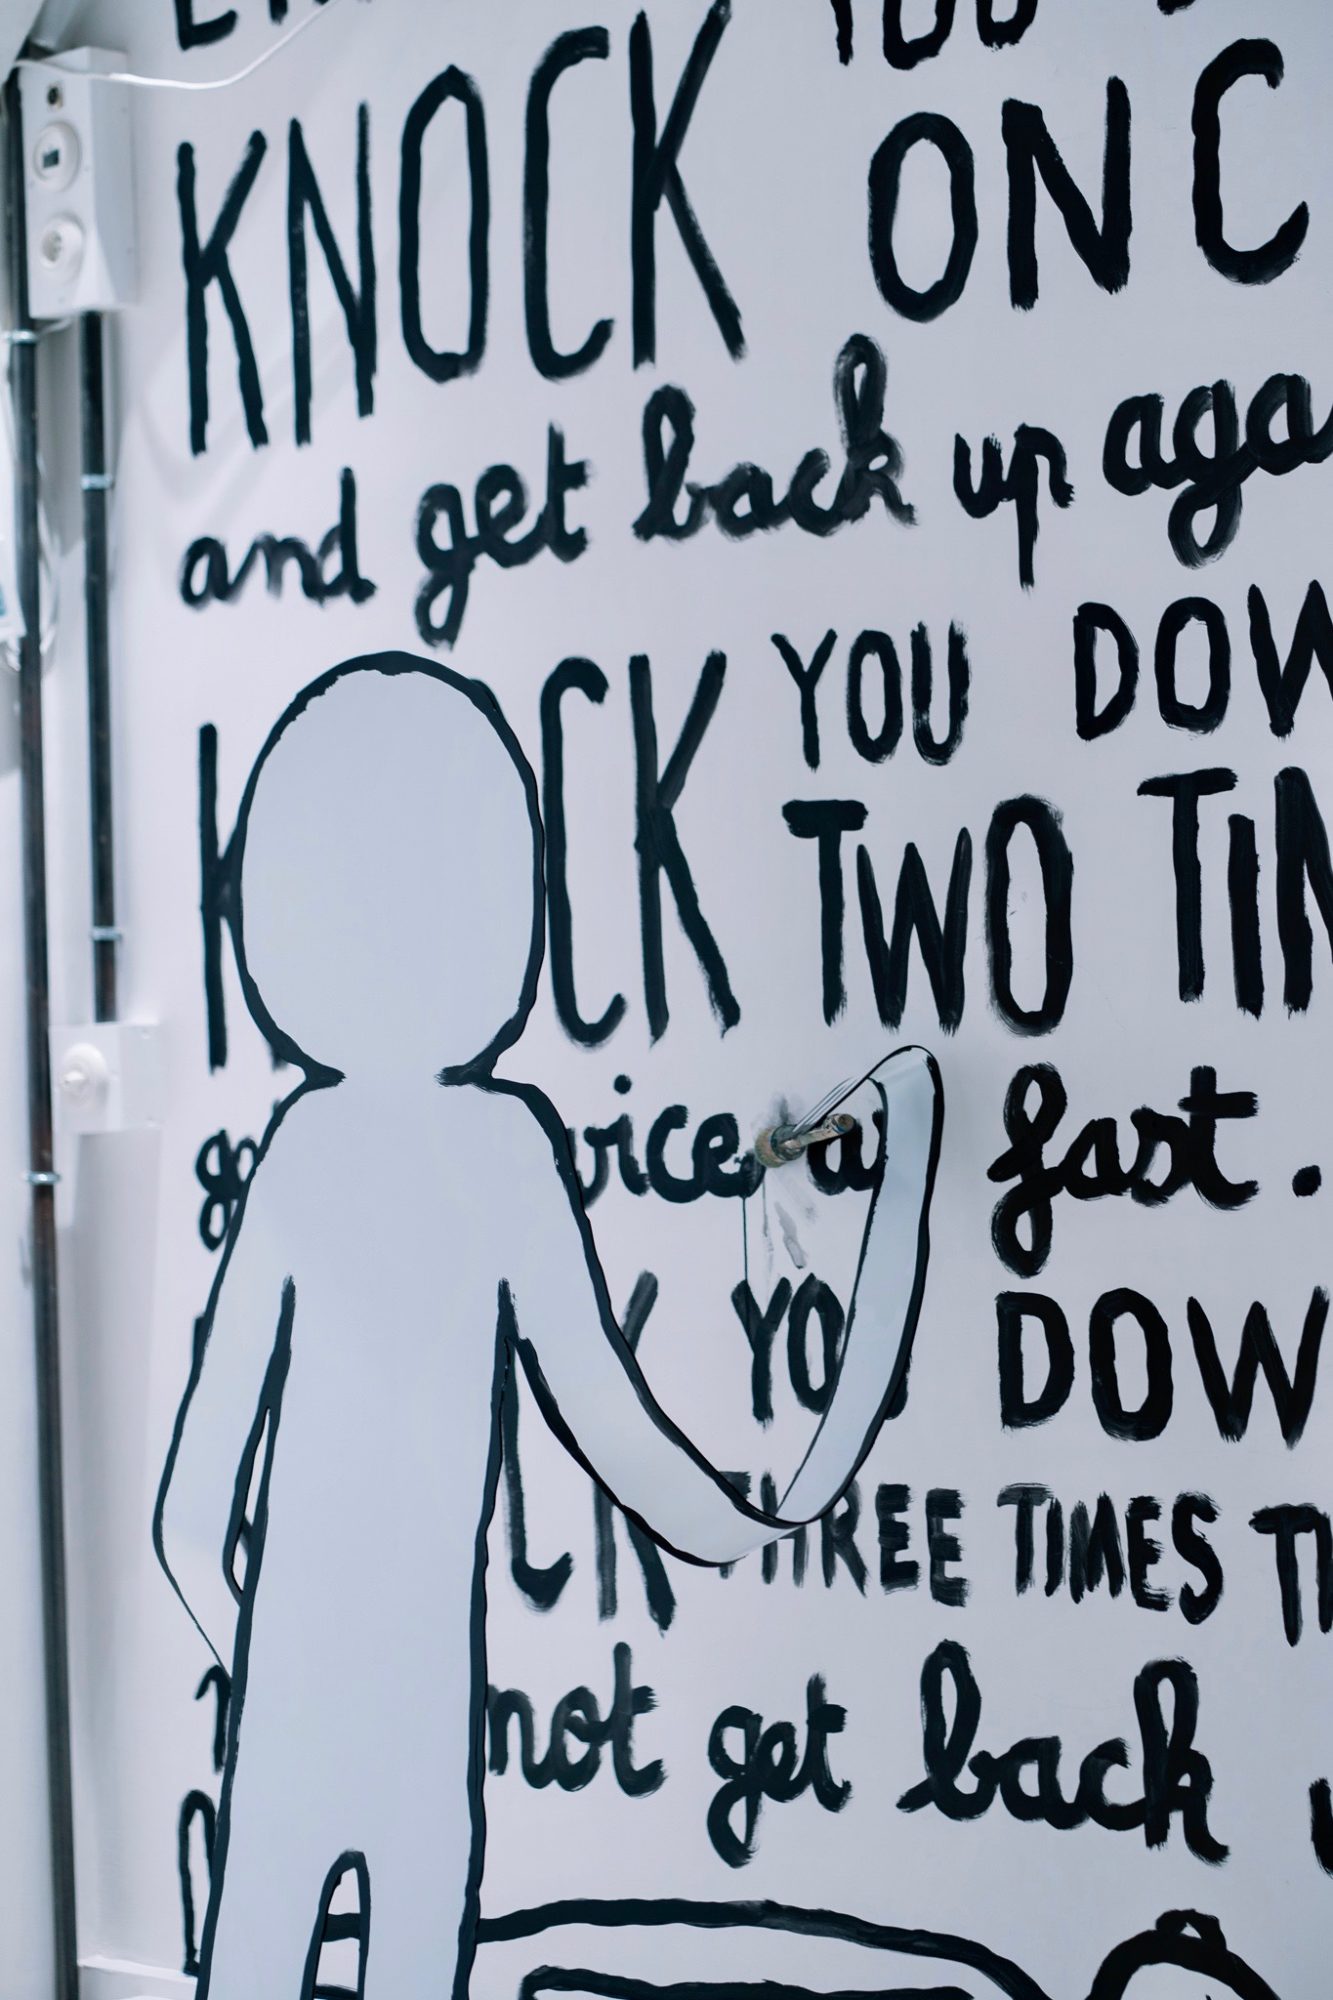 YOU
KNOCK ONC
and get back up aga
YOU DOW
CK TWO TIM
vice a fast.
K YOU DOW
CK THREE TIMES
not get back